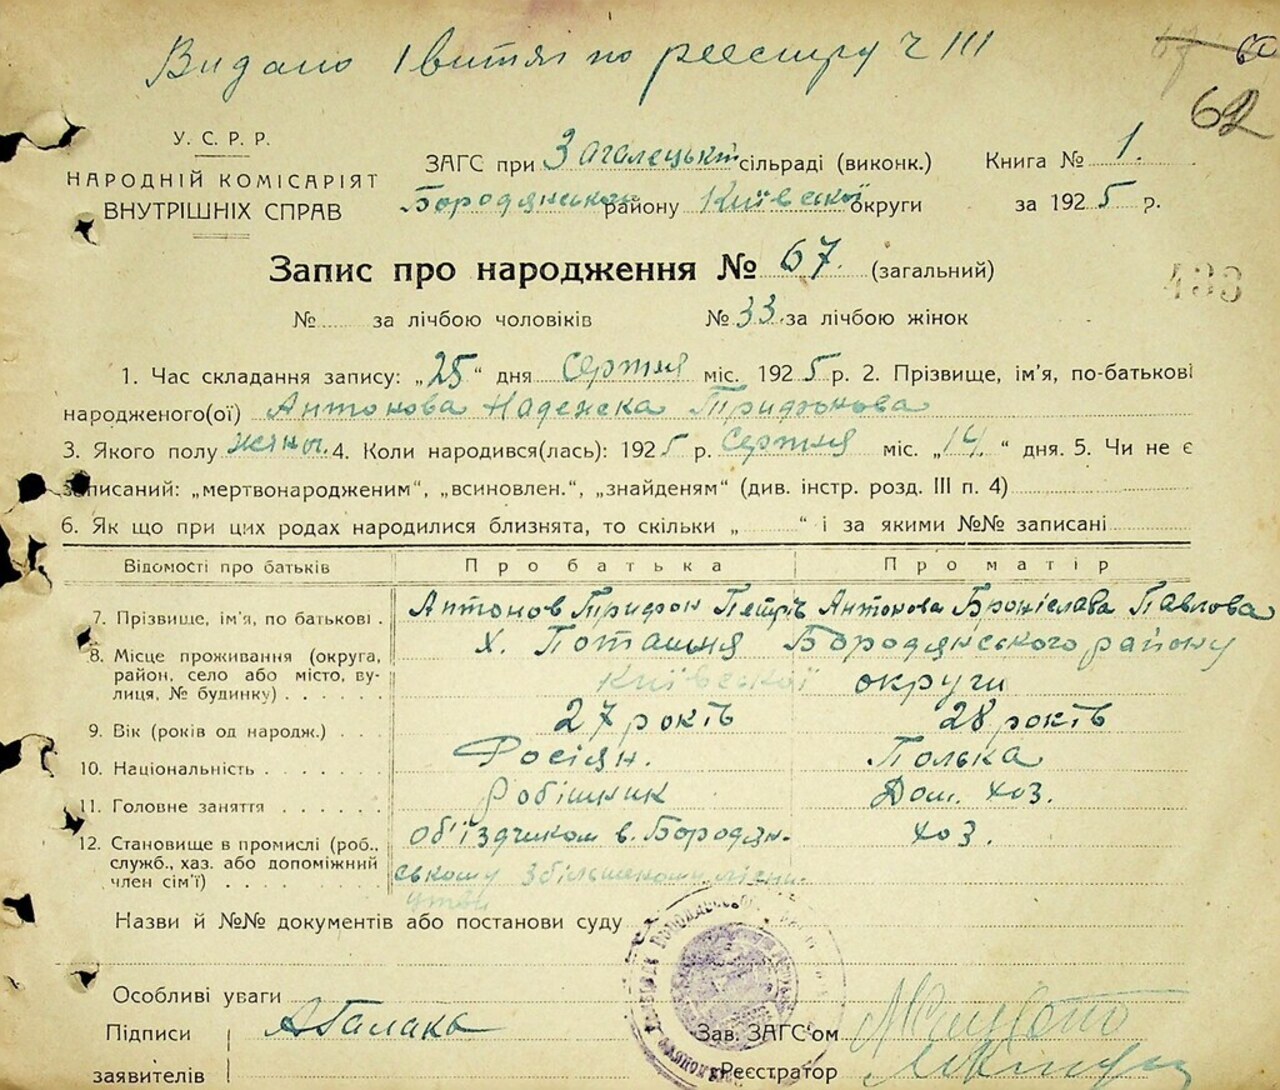 Видано 1 витяг по реєстру Ч III
67 60
62
У. С. Р. Р.
НАРОДНІЙ КОМІСАРІЯТ
ВНУТРІШНІХ СПРАВ
ЗАГС при Загалецькій сільраді (виконк.) Книга № 1.
Бородянського району Київської округи за 1925 р.
Запис про народження № 67. (загальний)
№ за лічбою чоловіків № 33. за лічбою жінок
1. Час складання запису: „25“ дня Серпня міс. 1925 р. 2. Прізвище, ім'я, по-батькові
народженого(ої) Антонова Надежда Трифонова
3. Якого полу жіноч. 4. Коли народився(лась): 1925 р. Серпня міс. „14.“ дня. 5. Чи не є
записаний: „мертвонародженим“, „всиновлен.“, „знайденям“ (див. інстр. розд. III п. 4)
6. Як що при цих родах народилися близнята, то скільки „ “ і за якими №№ записані
Відомості про батьків Про батька Про матір
7. Прізвище, ім'я, по батькові . Антонов Трифон Петріч Антонова Броніслава Павлова
8. Місце проживання (округа, район, село або місто, вулиця, № будинку) Х. Поташня Бородянського району
Київської округи
9. Вік (років од народж.) 27 років 28 років
10. Національність Росіян. Полька
11. Головне заняття Робітник Дом. хоз.
12. Становище в промислі (роб., служб., хаз. або допоміжний член сім'ї) об'їздчиком в. Бородян- хоз.
ському
Назви й №№ документів або постанови суду
Особливі уваги
Підписи
заявителів
Зав. ЗАГС'ом
Реєстратор